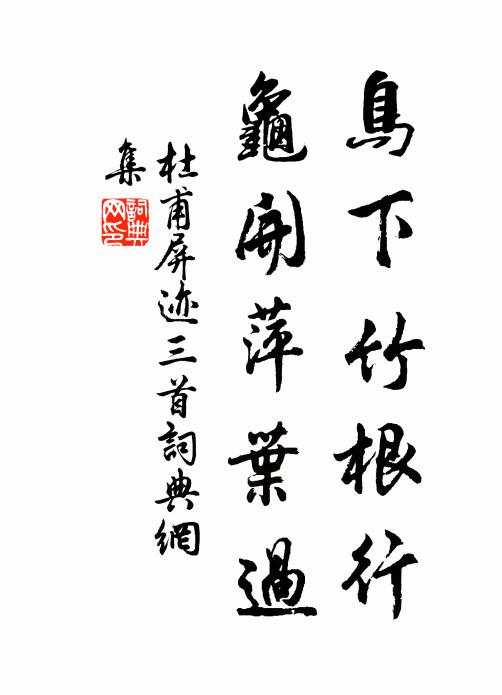 鳥下竹根行
龜開萍葉過
杜甫屏迹三首詞典網
集
詞典网印